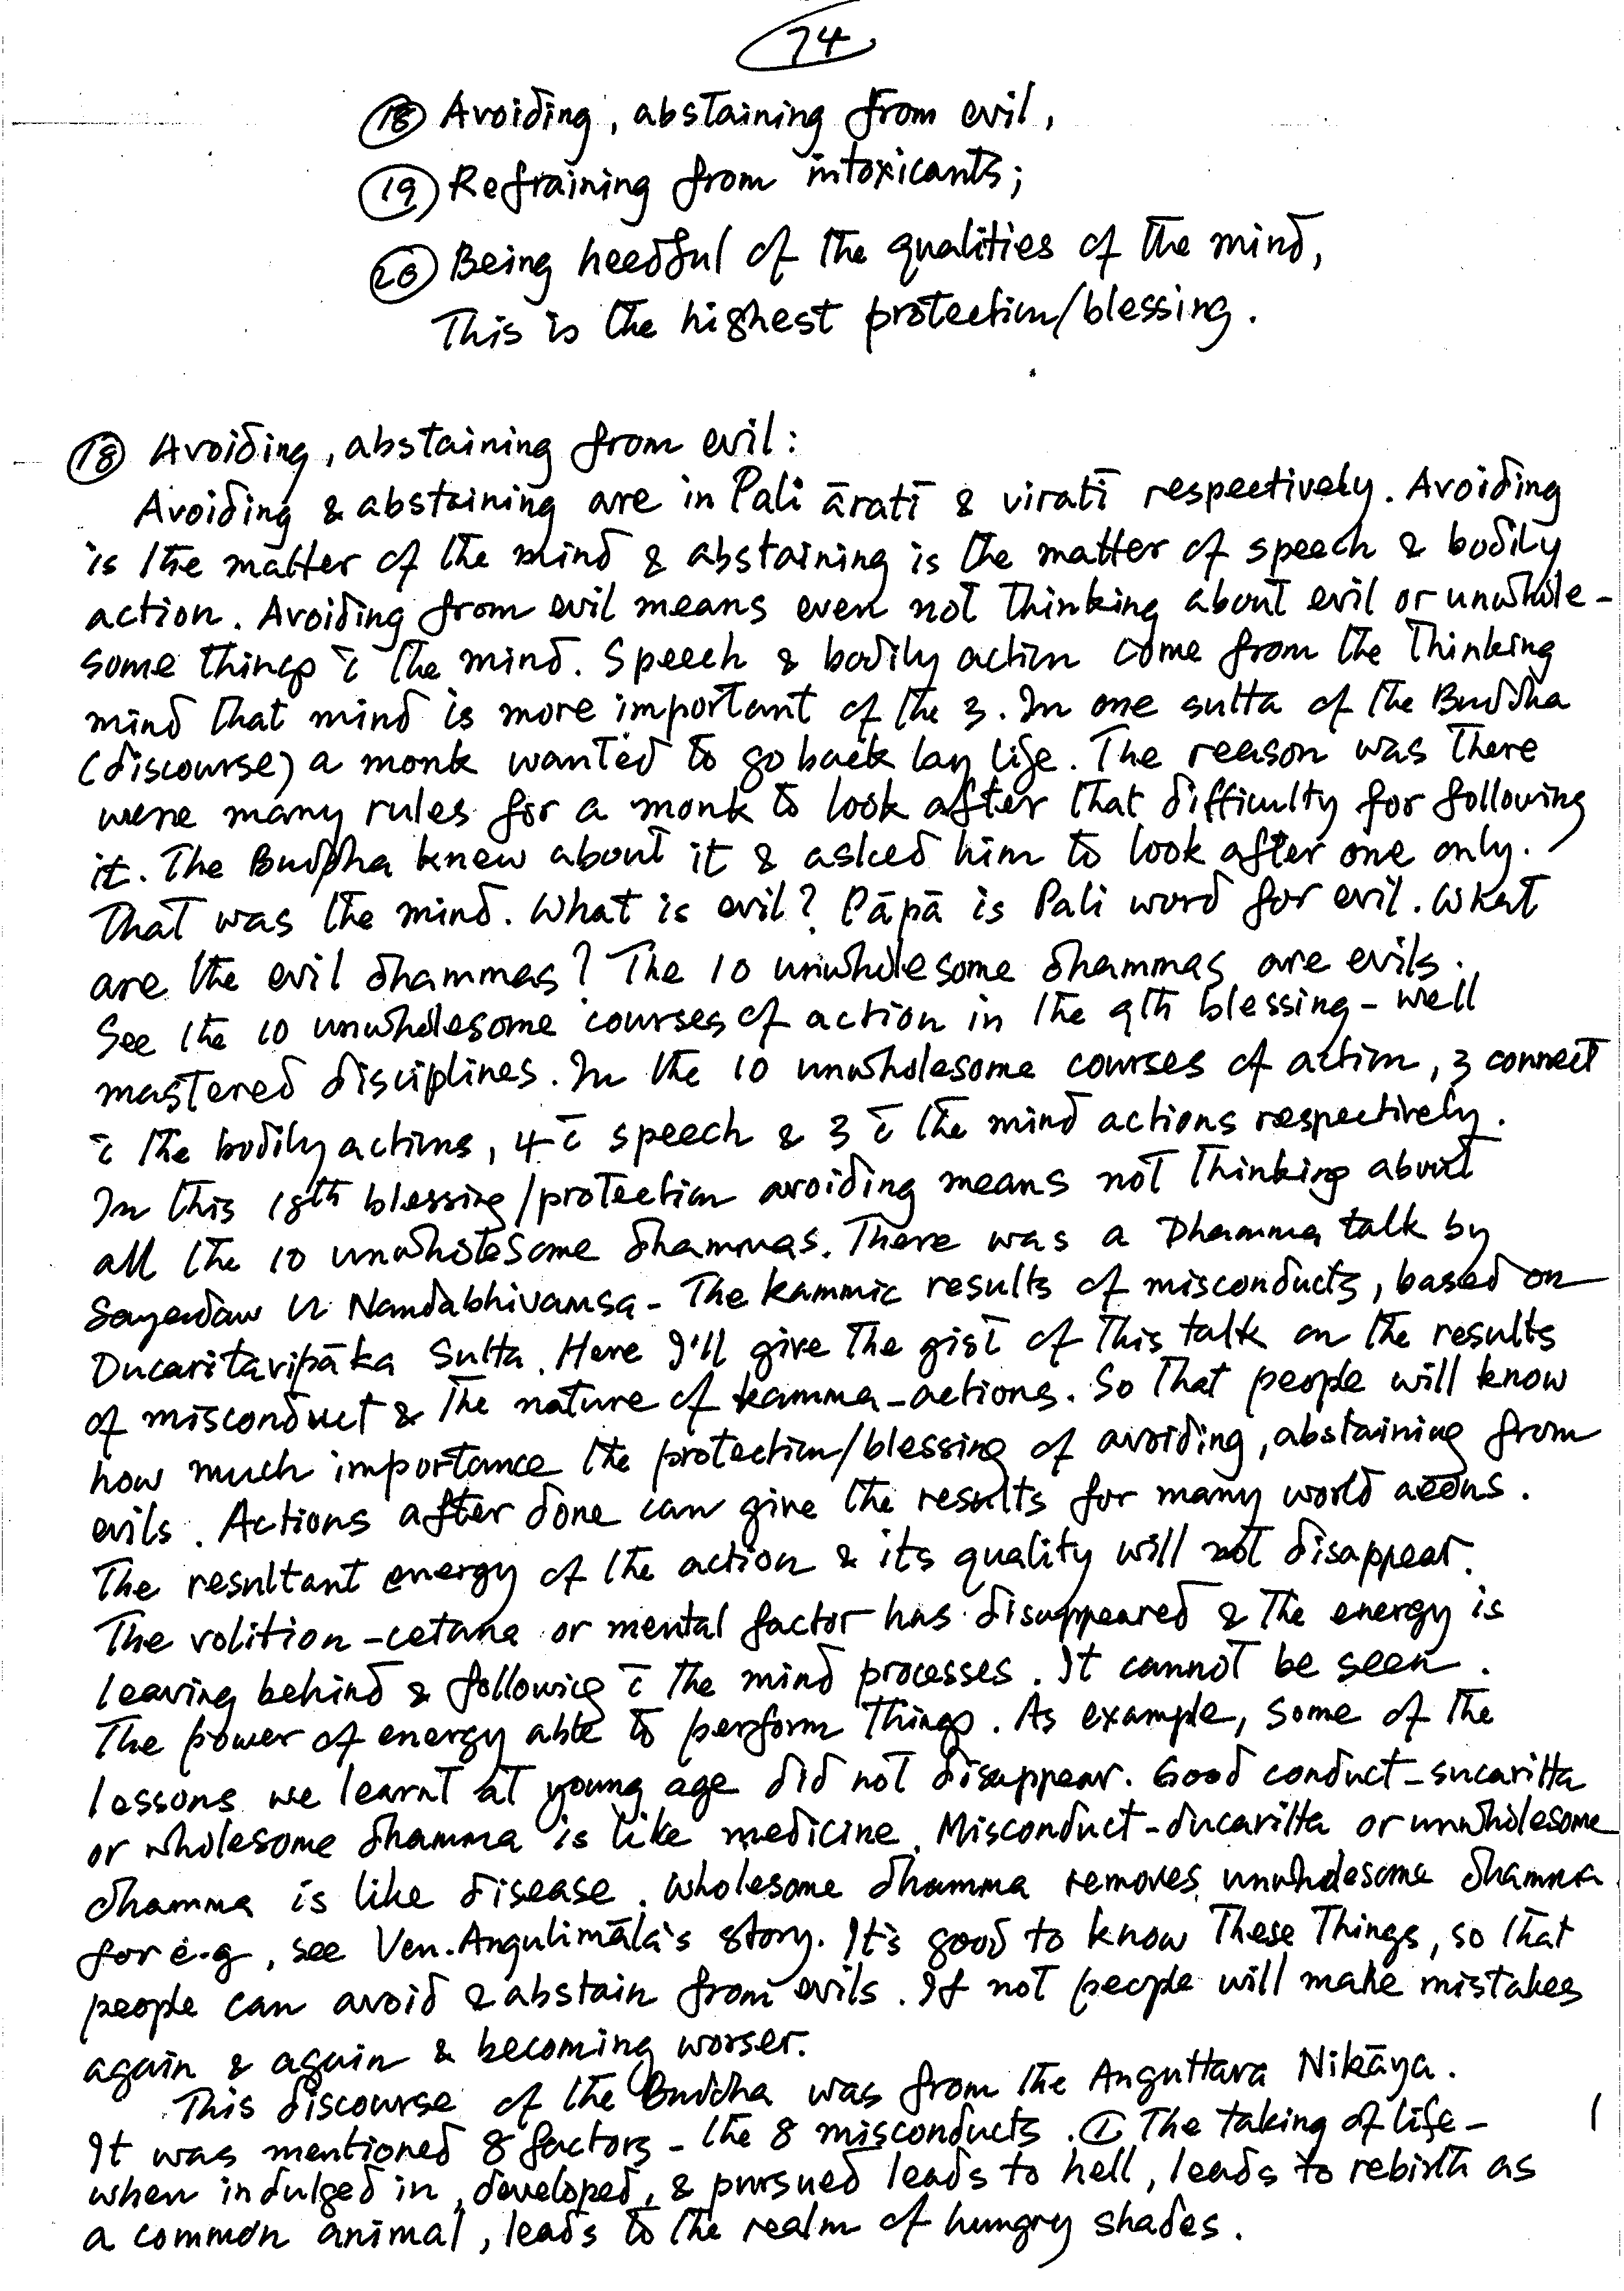 74
⑱ Avoiding, abstaining from evil,
⑲ Refraining from intoxicants;
⑳ Being heedful of the qualities of the mind,
This is the highest protection/blessing.
⑱ Avoiding, abstaining from evil:
Avoiding & abstaining are in Pali āratī & viratī respectively. Avoiding
is the matter of the mind & abstaining is the matter of speech & bodily
action. Avoiding from evil means even not thinking about evil or unwhole-
some things c̄ the mind. Speech & bodily action come from the thinking
mind that mind is more important of the 3. In one sutta of the Buddha
(discourse) a monk wanted to go back lay life. The reason was there
were many rules for a monk to look after that difficulty for following
it. The Buddha knew about it & asked him to look after one only.
That was the mind. What is evil? Pāpā is Pali word for evil. What
are the evil dhammas? The 10 unwholesome dhammas are evils.
See the 10 unwholesome courses of action in the 9th blessing - well
mastered disciplines. In the 10 unwholesome courses of action, 3 connect
c̄ the bodily actions, 4 c̄ speech & 3 c̄ the mind actions respectively.
In this 18th blessing/protection avoiding means not thinking about
all the 10 unwholesome dhammas. There was a Dhamma talk by
Sayadaw U Nandabhivamsa - The kammic results of misconducts, based on
Ducaritavipāka Sutta. Here I'll give the gist of this talk on the results
of misconduct & the nature of kamma-actions. So that people will know
how much importance the protection/blessing of avoiding, abstaining from
evils. Actions after done can give the results for many world aeons.
The resultant energy of the action & its quality will not disappear.
The volition-cetana or mental factor has disappeared & the energy is
leaving behind & following c̄ the mind processes. It cannot be seen.
The power of energy able to perform things. As example, some of the
lessons we learnt at young age did not disappear. Good conduct-sucaritta
or wholesome dhamma is like medicine. Misconduct-ducaritta or unwholesome
dhamma is like disease. Wholesome dhamma removes unwholesome dhamma
for e.g, see Ven. Angulimāla's story. It's good to know these things, so that
people can avoid & abstain from evils. If not people will make mistakes
again & again & becoming worser.
This discourse of the Buddha was from the Anguttara Nikāya.
It was mentioned 8 factors - the 8 misconducts. ① The taking of life -
when indulged in, developed, & pursued leads to hell, leads to rebirth as
a common animal, leads to the realm of hungry shades.